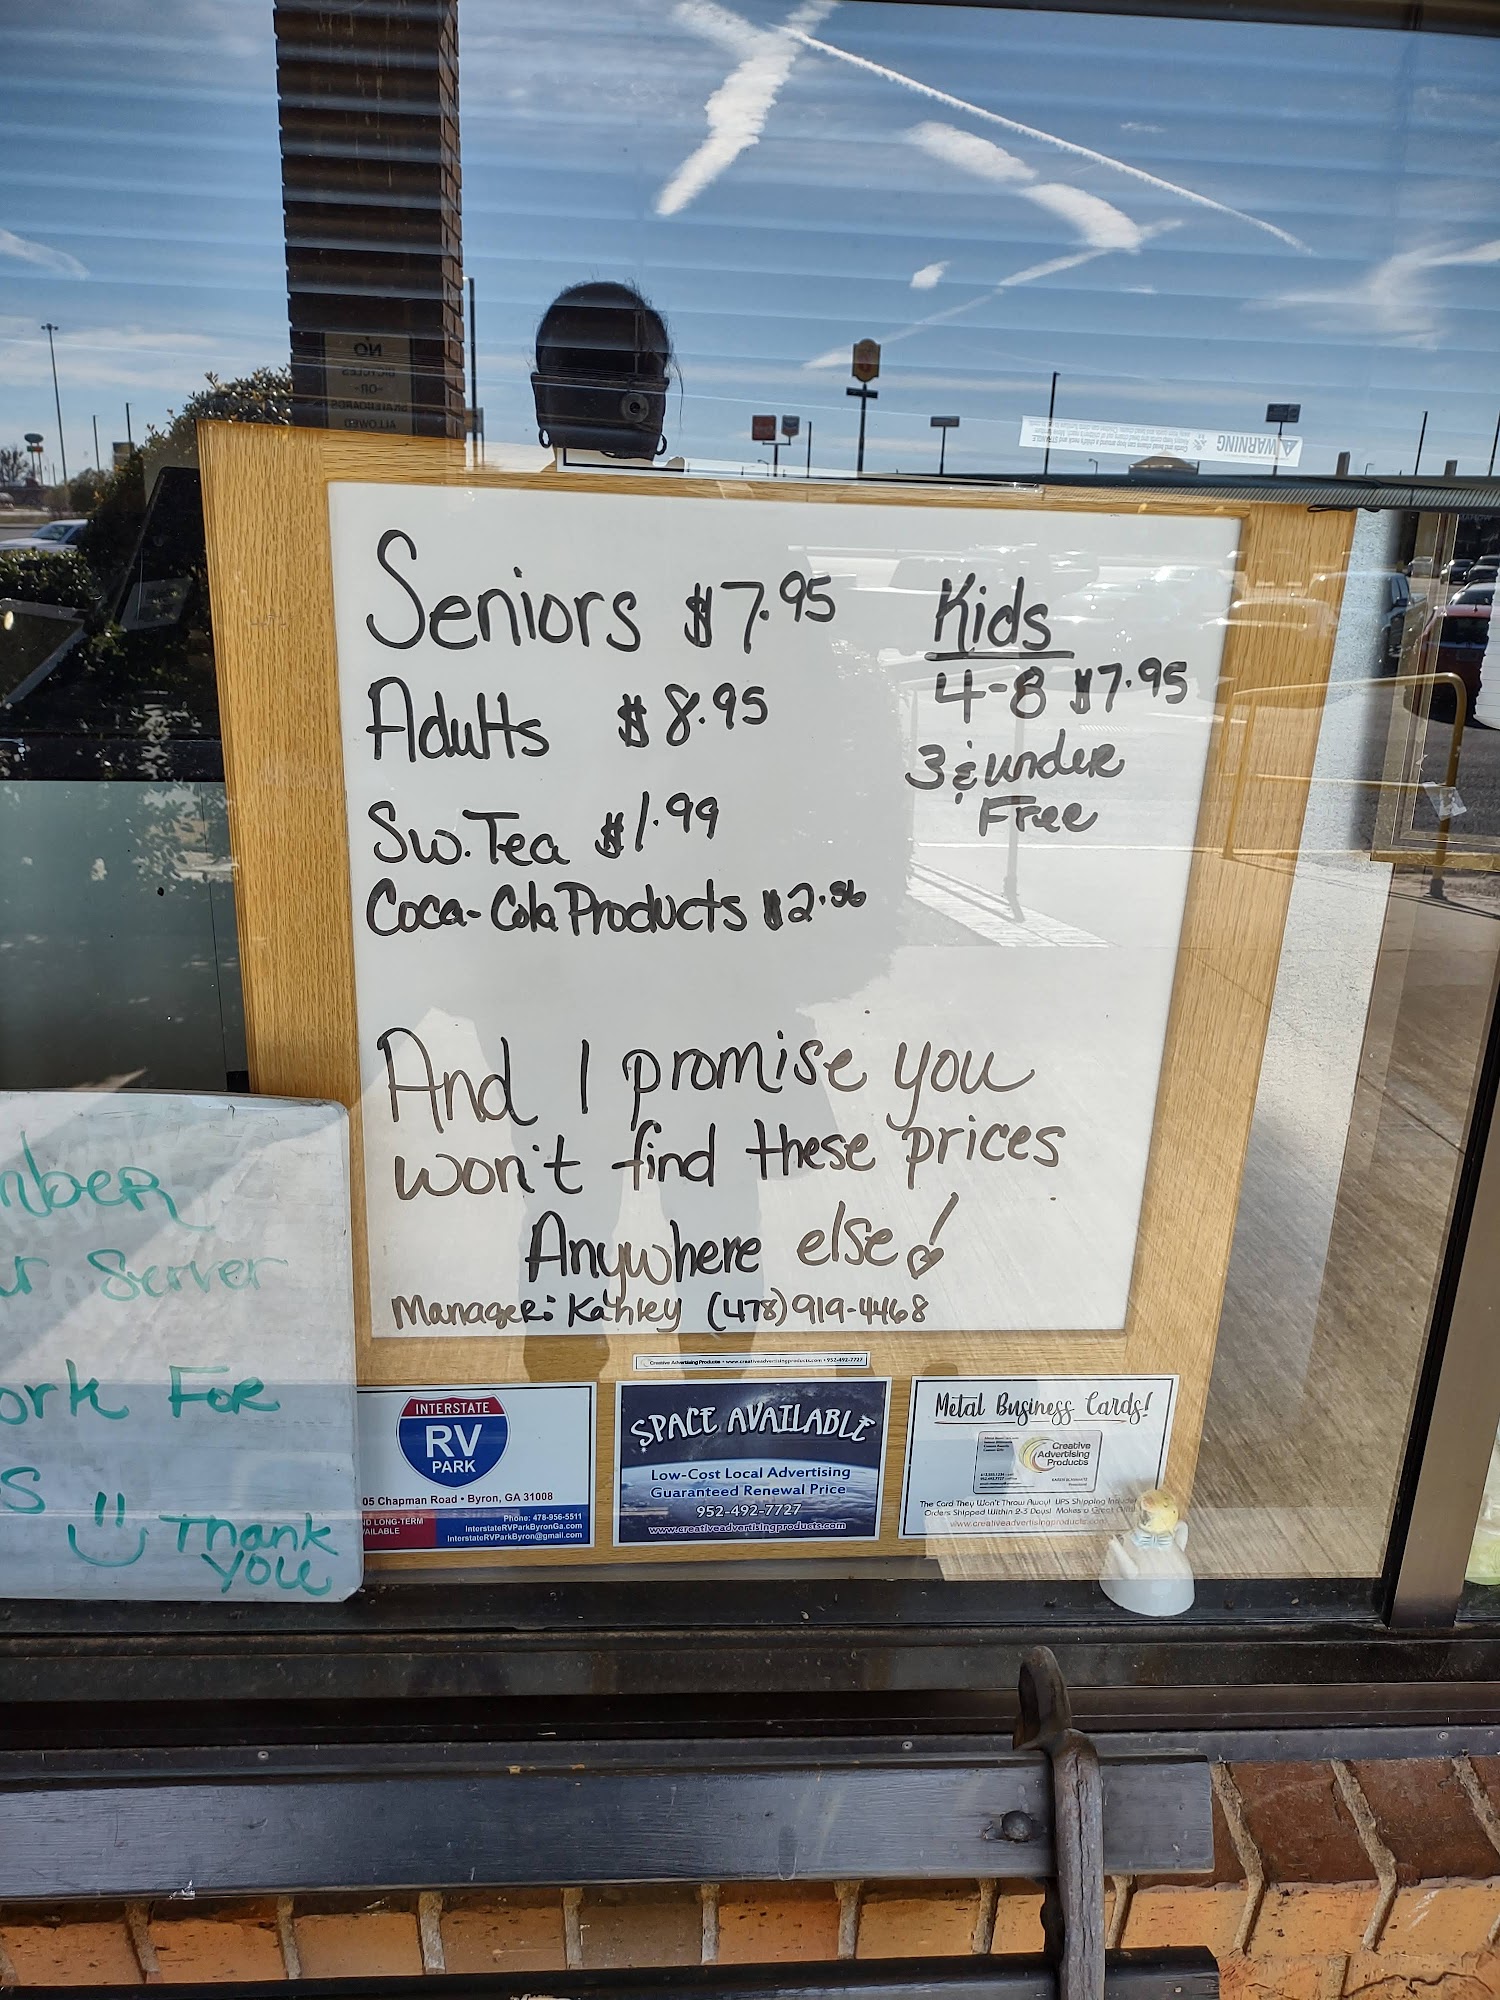 Seniors $7.95
Adults $8.95
Sw. Tea $1.99
Coca-Cola Products $2.56
Kids
4-8 $7.95
3 & under
Free
And I promise you
won't find these prices
Anywhere else!
Manager: Kahley (478) 919-4468
Server
For
Thank
you
WARNING
NO
BICYCLES
-OR-
SKATEBOARDS
ALLOWED
Creative Advertising Products • www.creativeadvertisingproducts.com • 952-492-7727
INTERSTATE
RV
PARK
05 Chapman Road • Byron, GA 31008
LONG-TERM
Phone: 478-956-5511
InterstateRVParkByronGa.com
InterstateRVParkByron@gmail.com
SPACE AVAILABLE
Low-Cost Local Advertising
Guaranteed Renewal Price
952-492-7727
www.creativeadvertisingproducts.com
Metal Business Cards!
Creative
Advertising
Products
The Card They Won't Throw Away! UPS Shipping
Orders Shipped Within 2-3 Days! Makes a Great
www.creativeadvertisingproducts.com